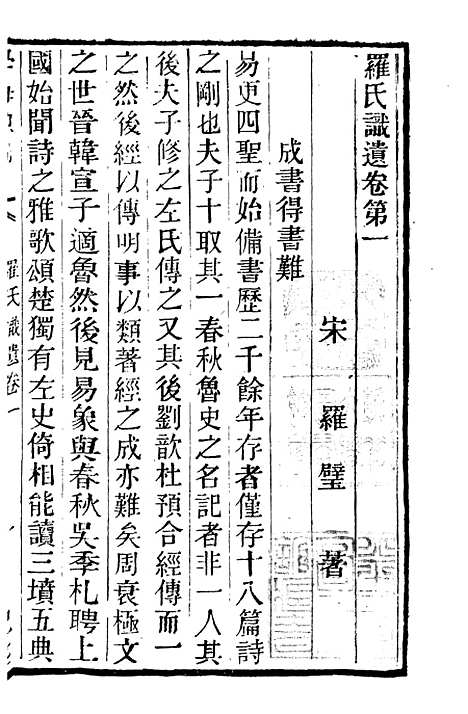 羅氏識遺卷第一
宋　羅璧　著
成書得書難
易更四聖而始備書歷二千餘年存者僅存十八篇詩
之剛也夫子十取其一春秋魯史之名記者非一人其
後夫子修之左氏傳之又其後劉歆杜預合經傳而一
之然後經以傳明事以類著經之成亦難矣周衰極文
之世晉韓宣子適魯然後見易象與春秋吳季札聘上
國始聞詩之雅歌頌楚獨有左史倚相能讀三墳五典
羅氏識遺卷一